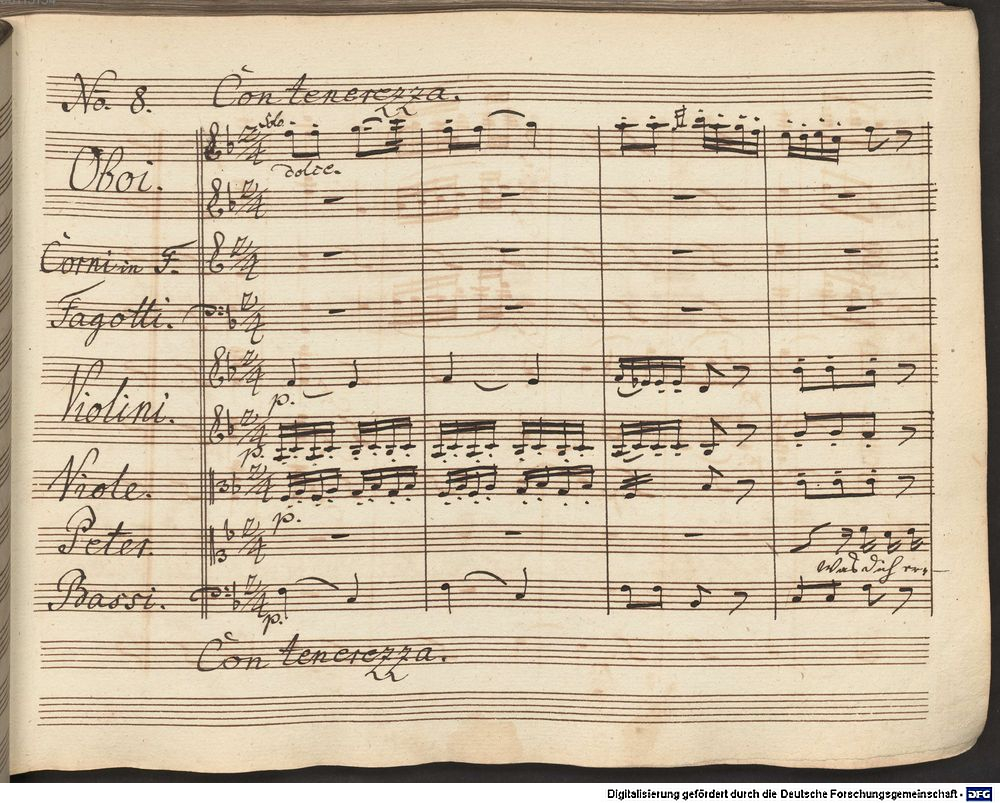 No. 8. Con tenerezza.
Solo.
Oboi.
dolce.
Corni in F.
Fagotti.
Violini.
p.
p.
Viole.
p.
Peter.
Was dich er-
Bassi.
p.
Con tenerezza.
Digitalisierung gefördert durch die Deutsche Forschungsgemeinschaft - DFG